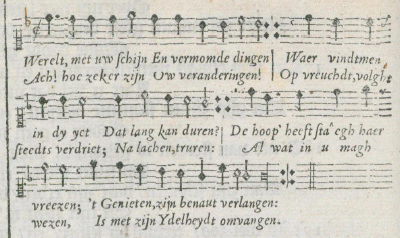 Werelt, met uw schijn En vermomde dingen! Waer vindtmen
Ach! hoe zeker zijn Uw veranderingen! Op vreuchdt, volght
in dy yet Dat lang kan duren? De hoop' heeft staêgh haer
steedts verdriet; Na lachen, truren: Al wat in u magh
vreezen; 't Genieten, zijn benaut verlangen:
wezen, Is met zijn Ydelheydt omvangen.